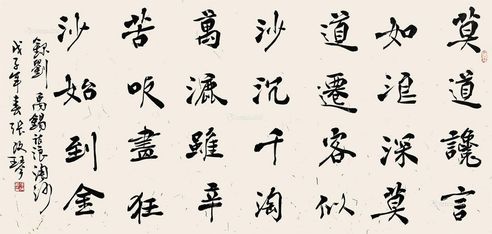 莫道讒言
如浪深莫
道遷客似
沙沉千淘
萬漉雖辛
苦吹盡狂
沙始到金
錄劉禹錫浪淘沙
戊子年春張改琴